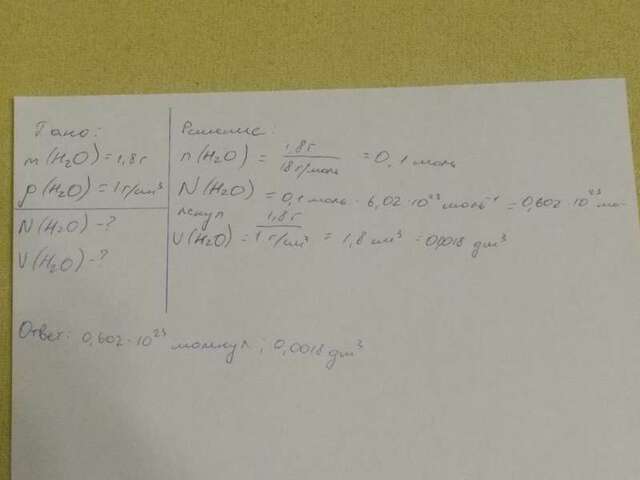 Дано:
m(H₂O) = 1,8 г
ρ(H₂O) = 1 г/см³
N(H₂O) - ?
V(H₂O) - ?
Решение:
n(H₂O) = 1,8 г / 18 г/моль = 0,1 моль
N(H₂O) = 0,1 моль · 6,02 · 10²³ моль⁻¹ = 0,602 · 10²³ мо-
лекул
V(H₂O) = 1,8 г / 1 г/см³ = 1,8 см³ = 0,0018 дм³
Ответ: 0,602 · 10²³ молекул; 0,0018 дм³